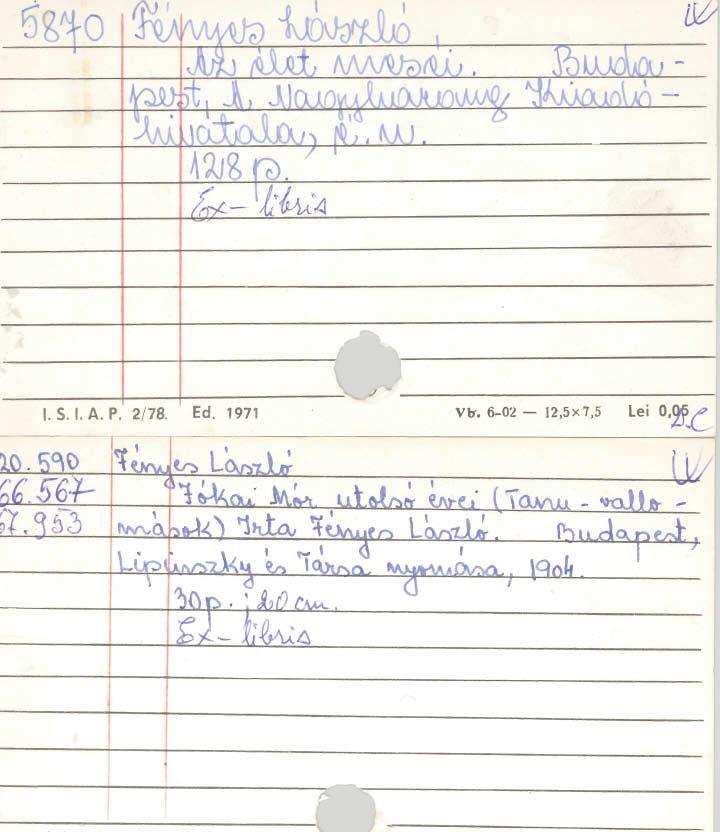 5870 Fényes László, IV
Az élet meséi. Buda-
pest, A Nagyharang Kiadó-
hivatala, é. n.
128 p.
Ex-libris
I. S. I. A. P. 2/78. Ed. 1971 Vb. 6-02 — 12,5×7,5 Lei 0,05
D.C
20.590 Fényes László IV
66.567 Jókai Mór utolsó évei (Tanu-vallo-
67.953 mások) Irta Fényes László. Budapest,
Lipinszky és Társa nyomása, 1904.
30 p. ; 20 cm.
Ex-libris